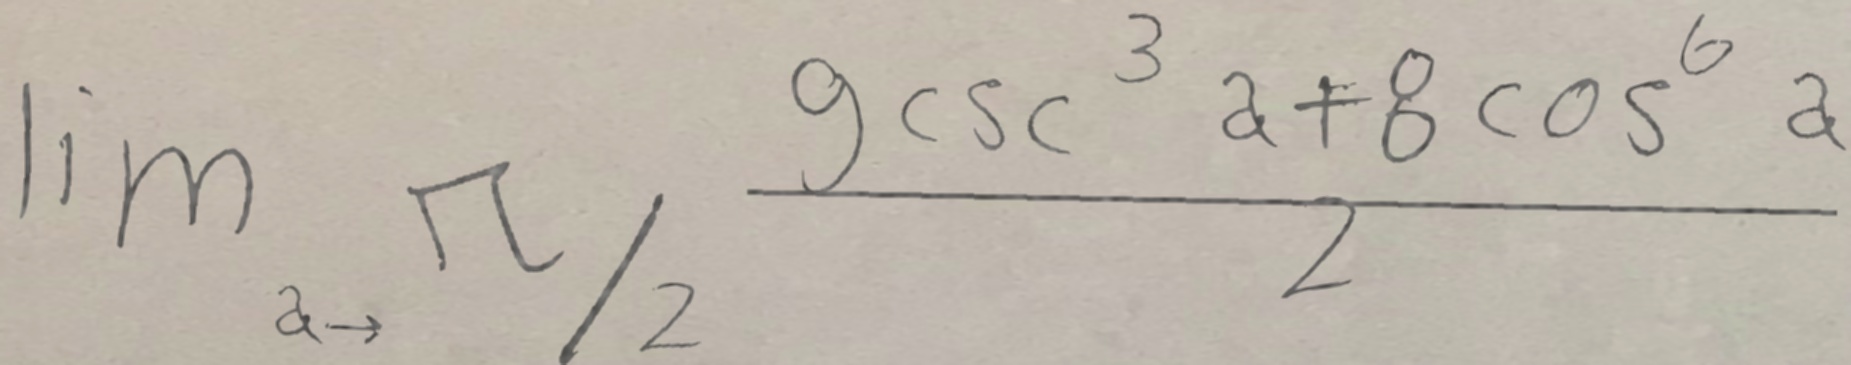 \lim_{a \to \pi/2} \frac{9 \csc^3 a + 8 \cos^6 a}{2}